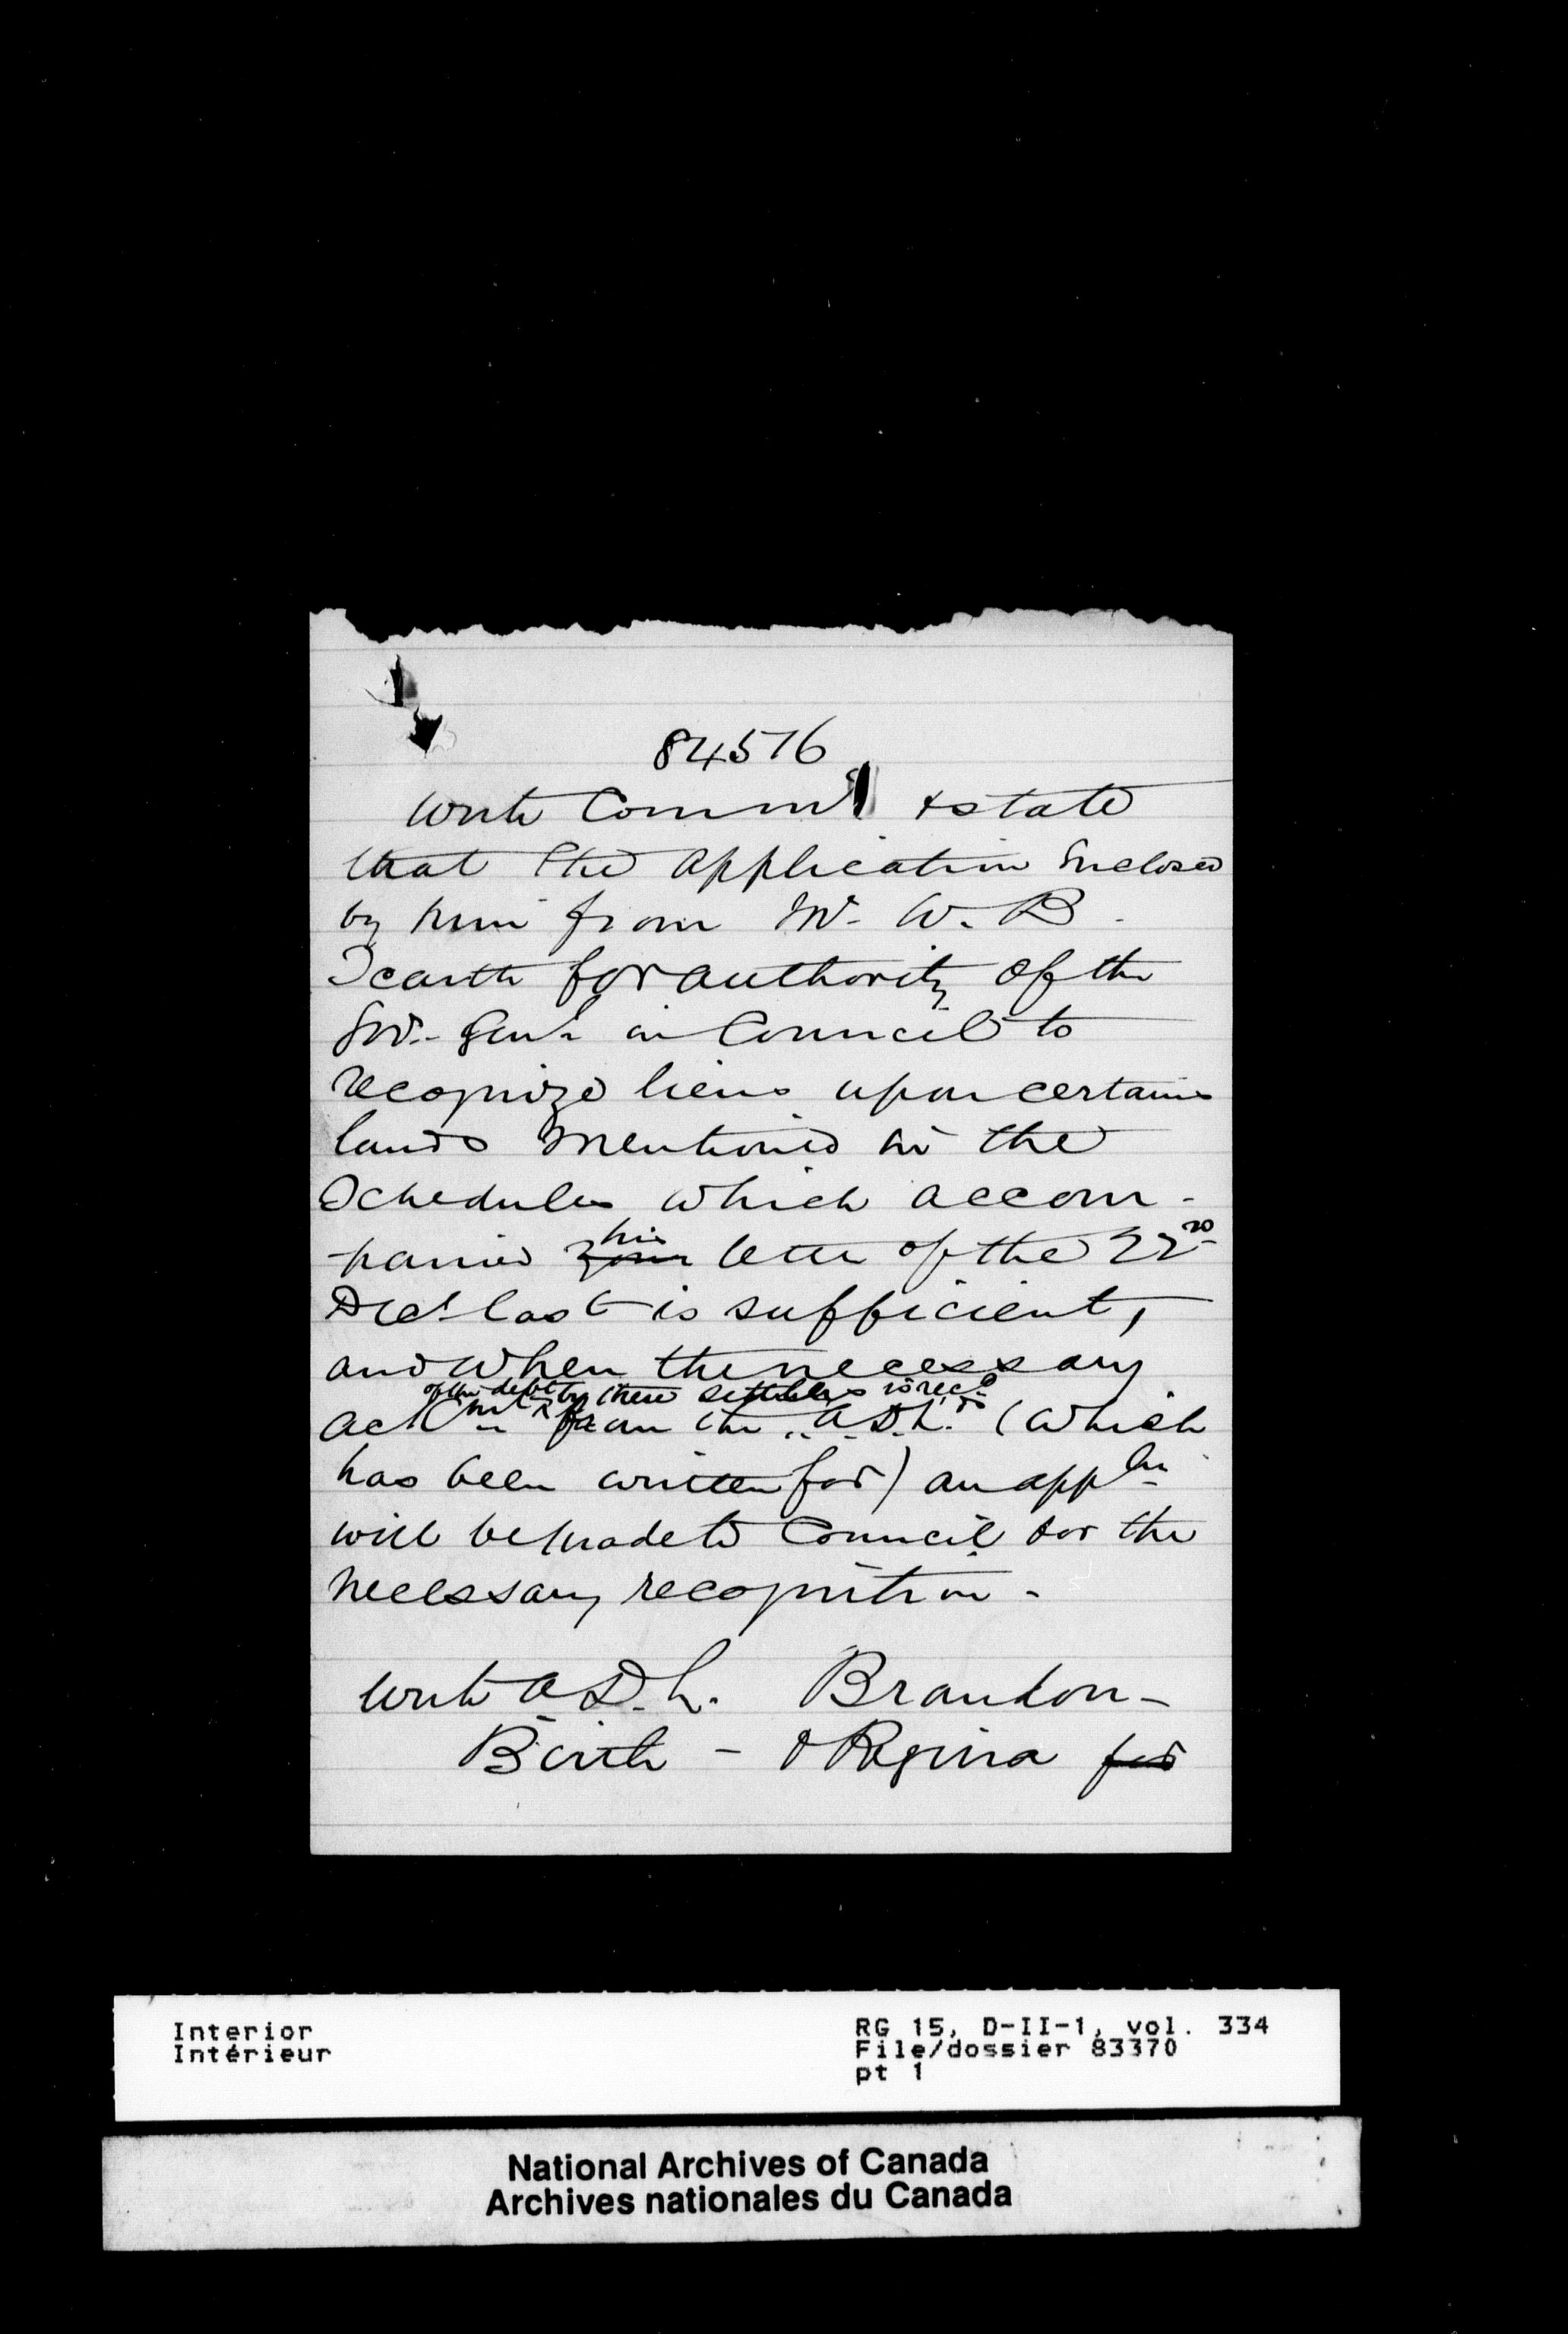 84576
Write Comm & state
that the application enclosed
by him from Mr. W. B.
Scarth for authority of the
Gov.- Genl in Council to
recognize liens upon certain
lands mentioned in the
Schedules which accom-
panied ~~your~~ his letter of the 22nd
Decr last is sufficient,
and when the necessary
of the debt by these settlers is recd
ackmt from the A.D.L. (which
has been written for) an appln
will be made to Council for the
necessary recognition -
Write A.D.L. Brandon -
Birtle - & Regina ~~for~~
Interior
Intérieur
RG 15, D-II-1, vol. 334
File/dossier 83370
pt 1
National Archives of Canada
Archives nationales du Canada